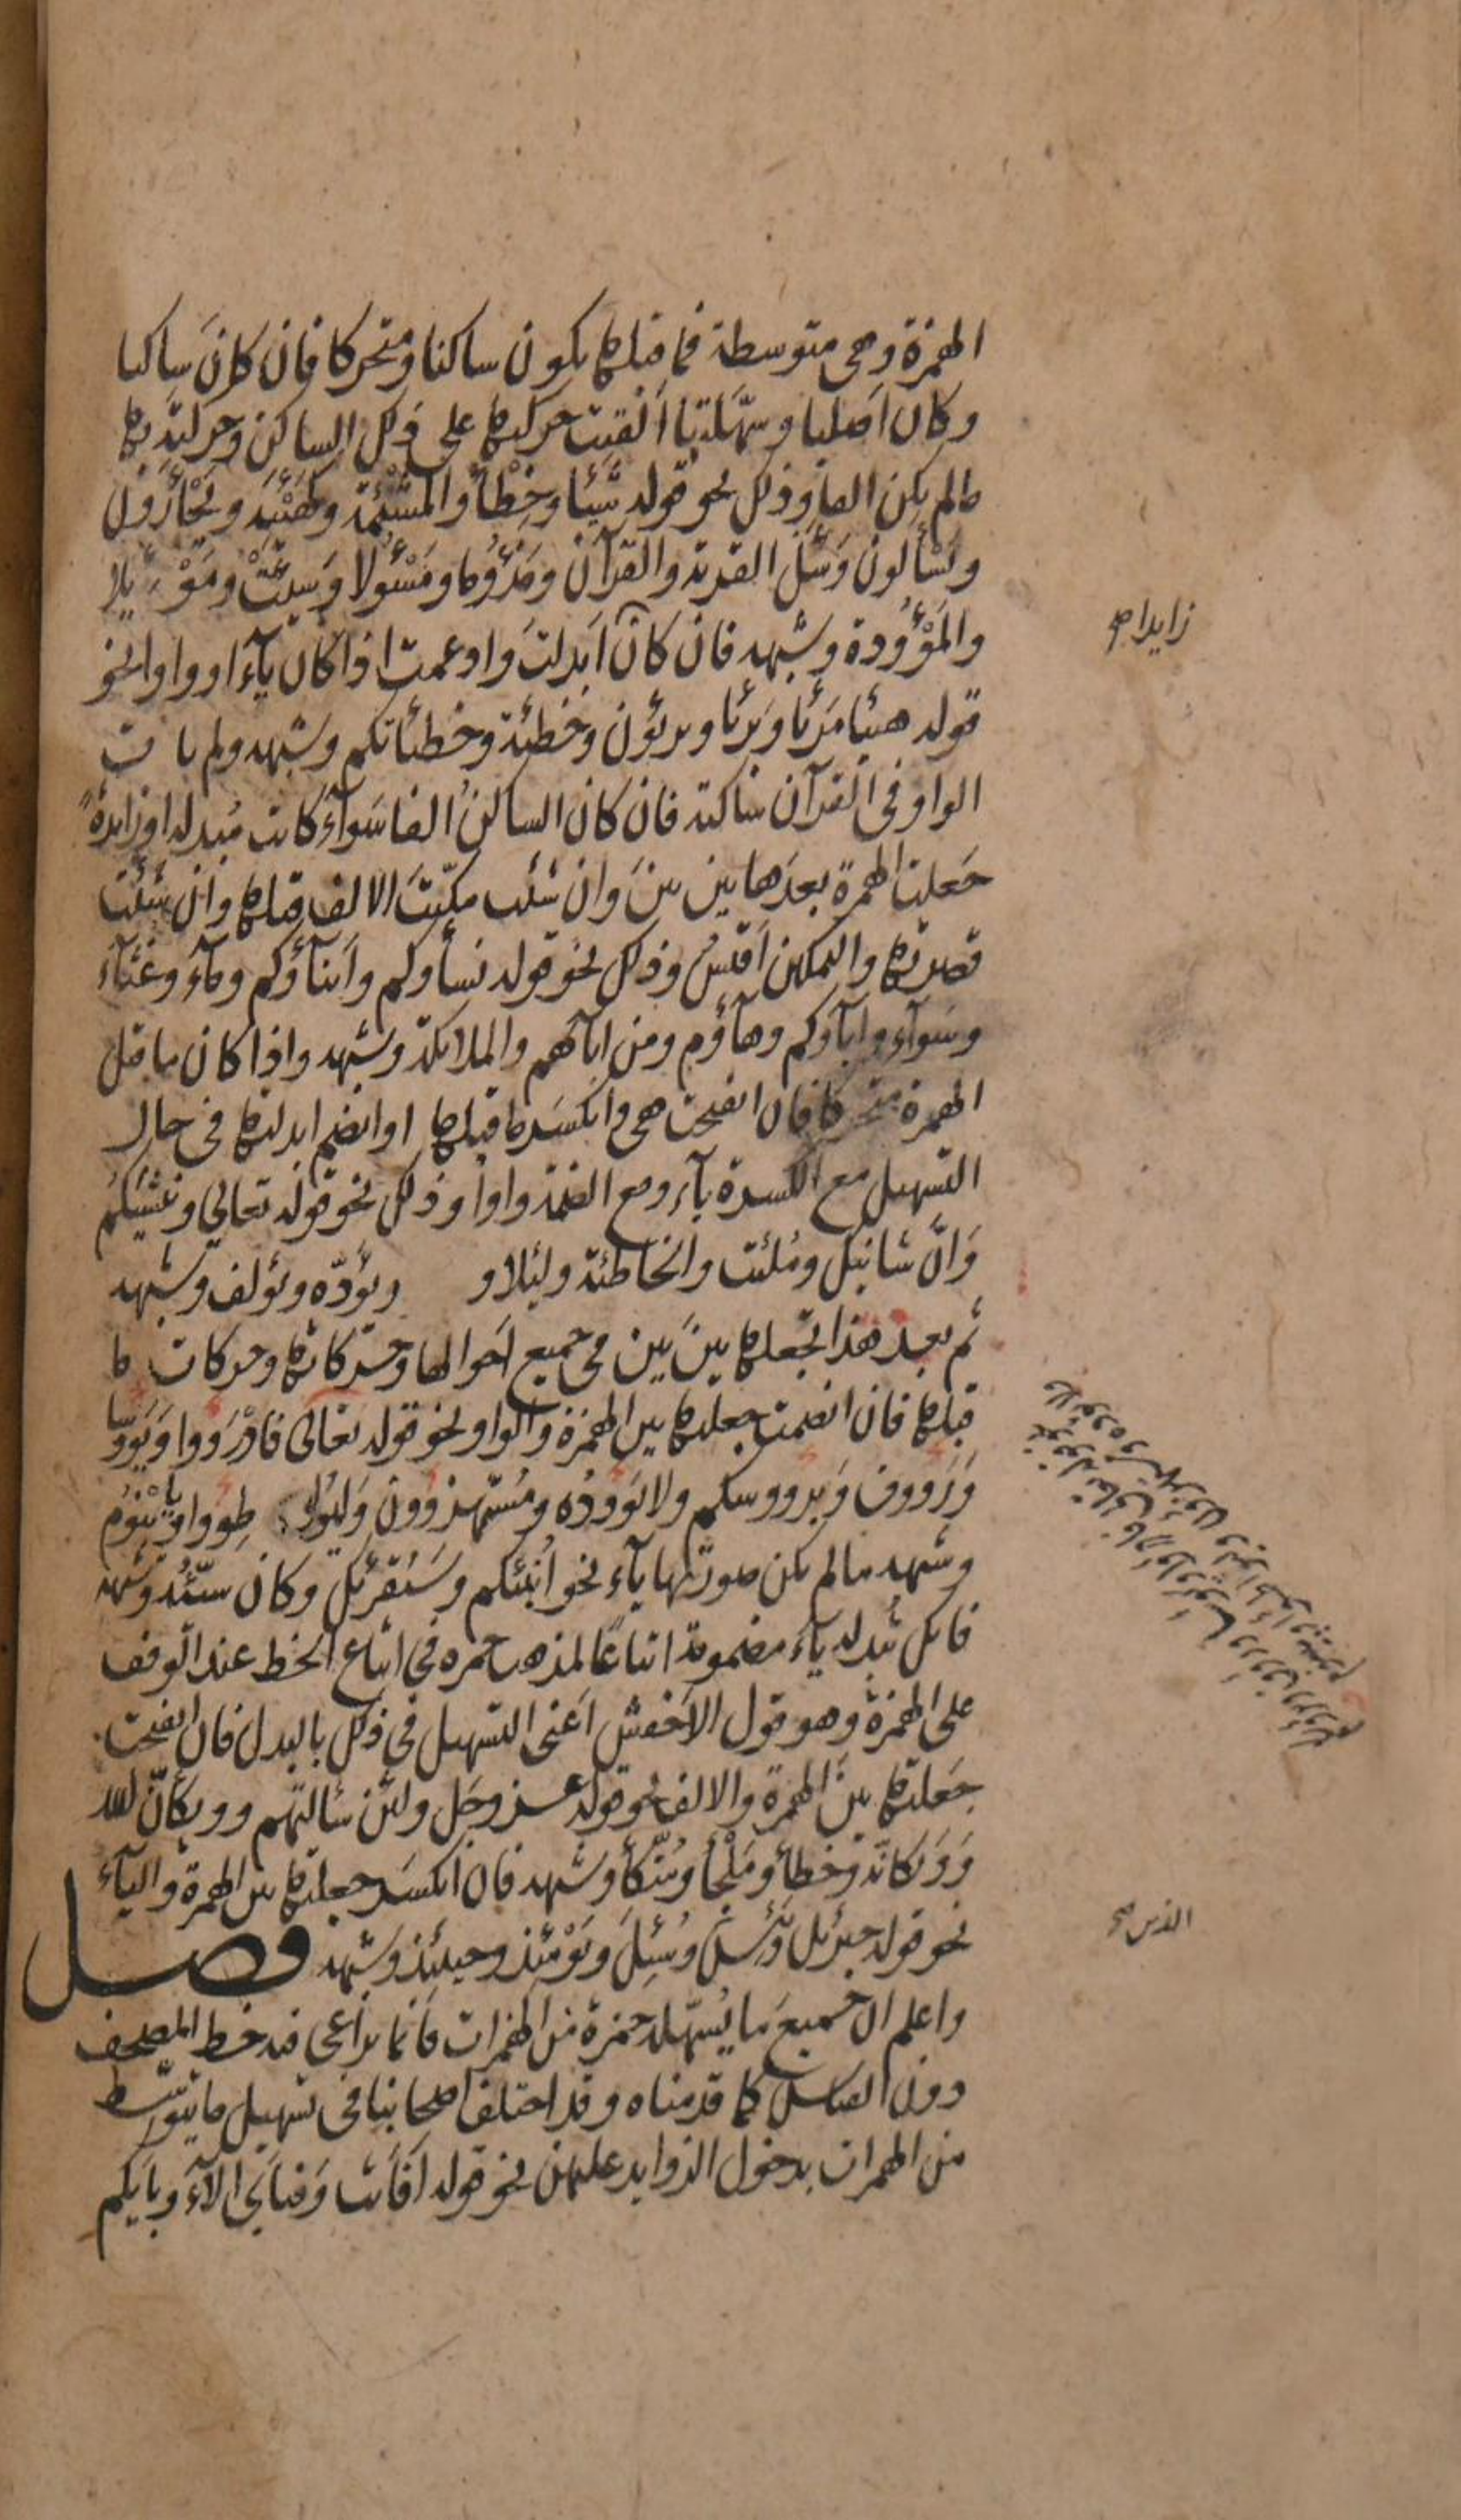 الهمزة وهى متوسطة فما قبلها يكون ساكنا ومتحركا فان كان ساكنا
وكان اصليا وسهّلتها اَلقيت حركتها على ذلك الساكن وحركته بها
مالم يكن الفا وذلك نحو قوله شيئا وخِطْأً والمشْئمة وكَهَيْئَة ويَجْأَرُون
ويَسْألون وسئَل القرية والقرآن ومَذْؤُما ومَسْئُولا وسيئت ومَوْئلا
والمَوْؤُودة وشبهه فان كان اَبدلت وادغمت اذا كان يآء او واوا نحو
قوله هنيئا مَريئا وبَريئا وبريئون وخطيئة وخطيئاتكم وشبهه ولم يات
الواو فى القرآن ساكنة فان كان الساكنُ الفا سَوآءً كانت مُبدلة او زايدةً
جَعلت الهمزة بعدَها بين بينَ وان شئت مكّنتَ الالف قبلها وان شئت
قصرتها والتمكين اَقيسُ وذلك نحو قوله نسآؤكم وابنآؤكم ومآءً وغثآءً
وسَوآء واٰبآؤكم وهآؤُم ومن اٰبآئهم والملائكة وشبهه واذا كان ما قبل
الهمزة متحركا فان انفتحت هى وانكسَر ما قبلها او انضم ابدلتها فى حال
التسهيل مع الكسرة يآء ومع الضمة واوا وذلك نحو قوله تعالى وننشئكم
وَانّ شانئك ومُلئت والخاطئة ولئلا و ويؤدّه ويؤلف وشبهه
ثم بعد هذا تجعلها بينَ بين فى جميع اَحوالها وحركاتها وحركات ما
قبلها فان انضمت جعلتها بين الهمزة والواو نحو قوله تعالى فادْرَووا ويَؤوسا
ورَووف وَبرووسكم ولا يَوودُه ومُستهزوون وليُوا طووا ويَبْنَؤُم
وشبهه مالم يكن صورتها يآء نحو اُنبّئكم وسَنُقرئك وكان سيّئُه وشبهه
فانك تُبدله يآء مضمومة اتباعًا لمذهب حمزه فى اتباع الخط عند الوقف
على الهمزة وهو قول الاَخفش اَعنى التسهيل فى ذلك بالبدل فان انفتحت
جَعلتها بين الهمزة والالف نحو قوله عز وجَل ولئن سَالتهم وويكأنّ الله
وَوَيكانّه وخطأً ومَلْجأً ومُتّكأً وشبهه فان انكسَرت جعلتها بين الهمزة واليآء
نحو قوله جبرئل ويَئِسَ وسُئِلَ ويَوْمَئذ وحينئذ وشبهه فصل
واعلم ان جميع ما يُسهّله حمزة من الهمزات فانما يراعى فيه خط المصحف
دون القياس كما قدمناه وقد اختلف اصحابنا فى تسهيل ما يتوسّط
من الهمزات بدخول الزوايد عليهن نحو قوله اَفَانت وفبايّ اٰلآء وبايّكم
زايدا صح